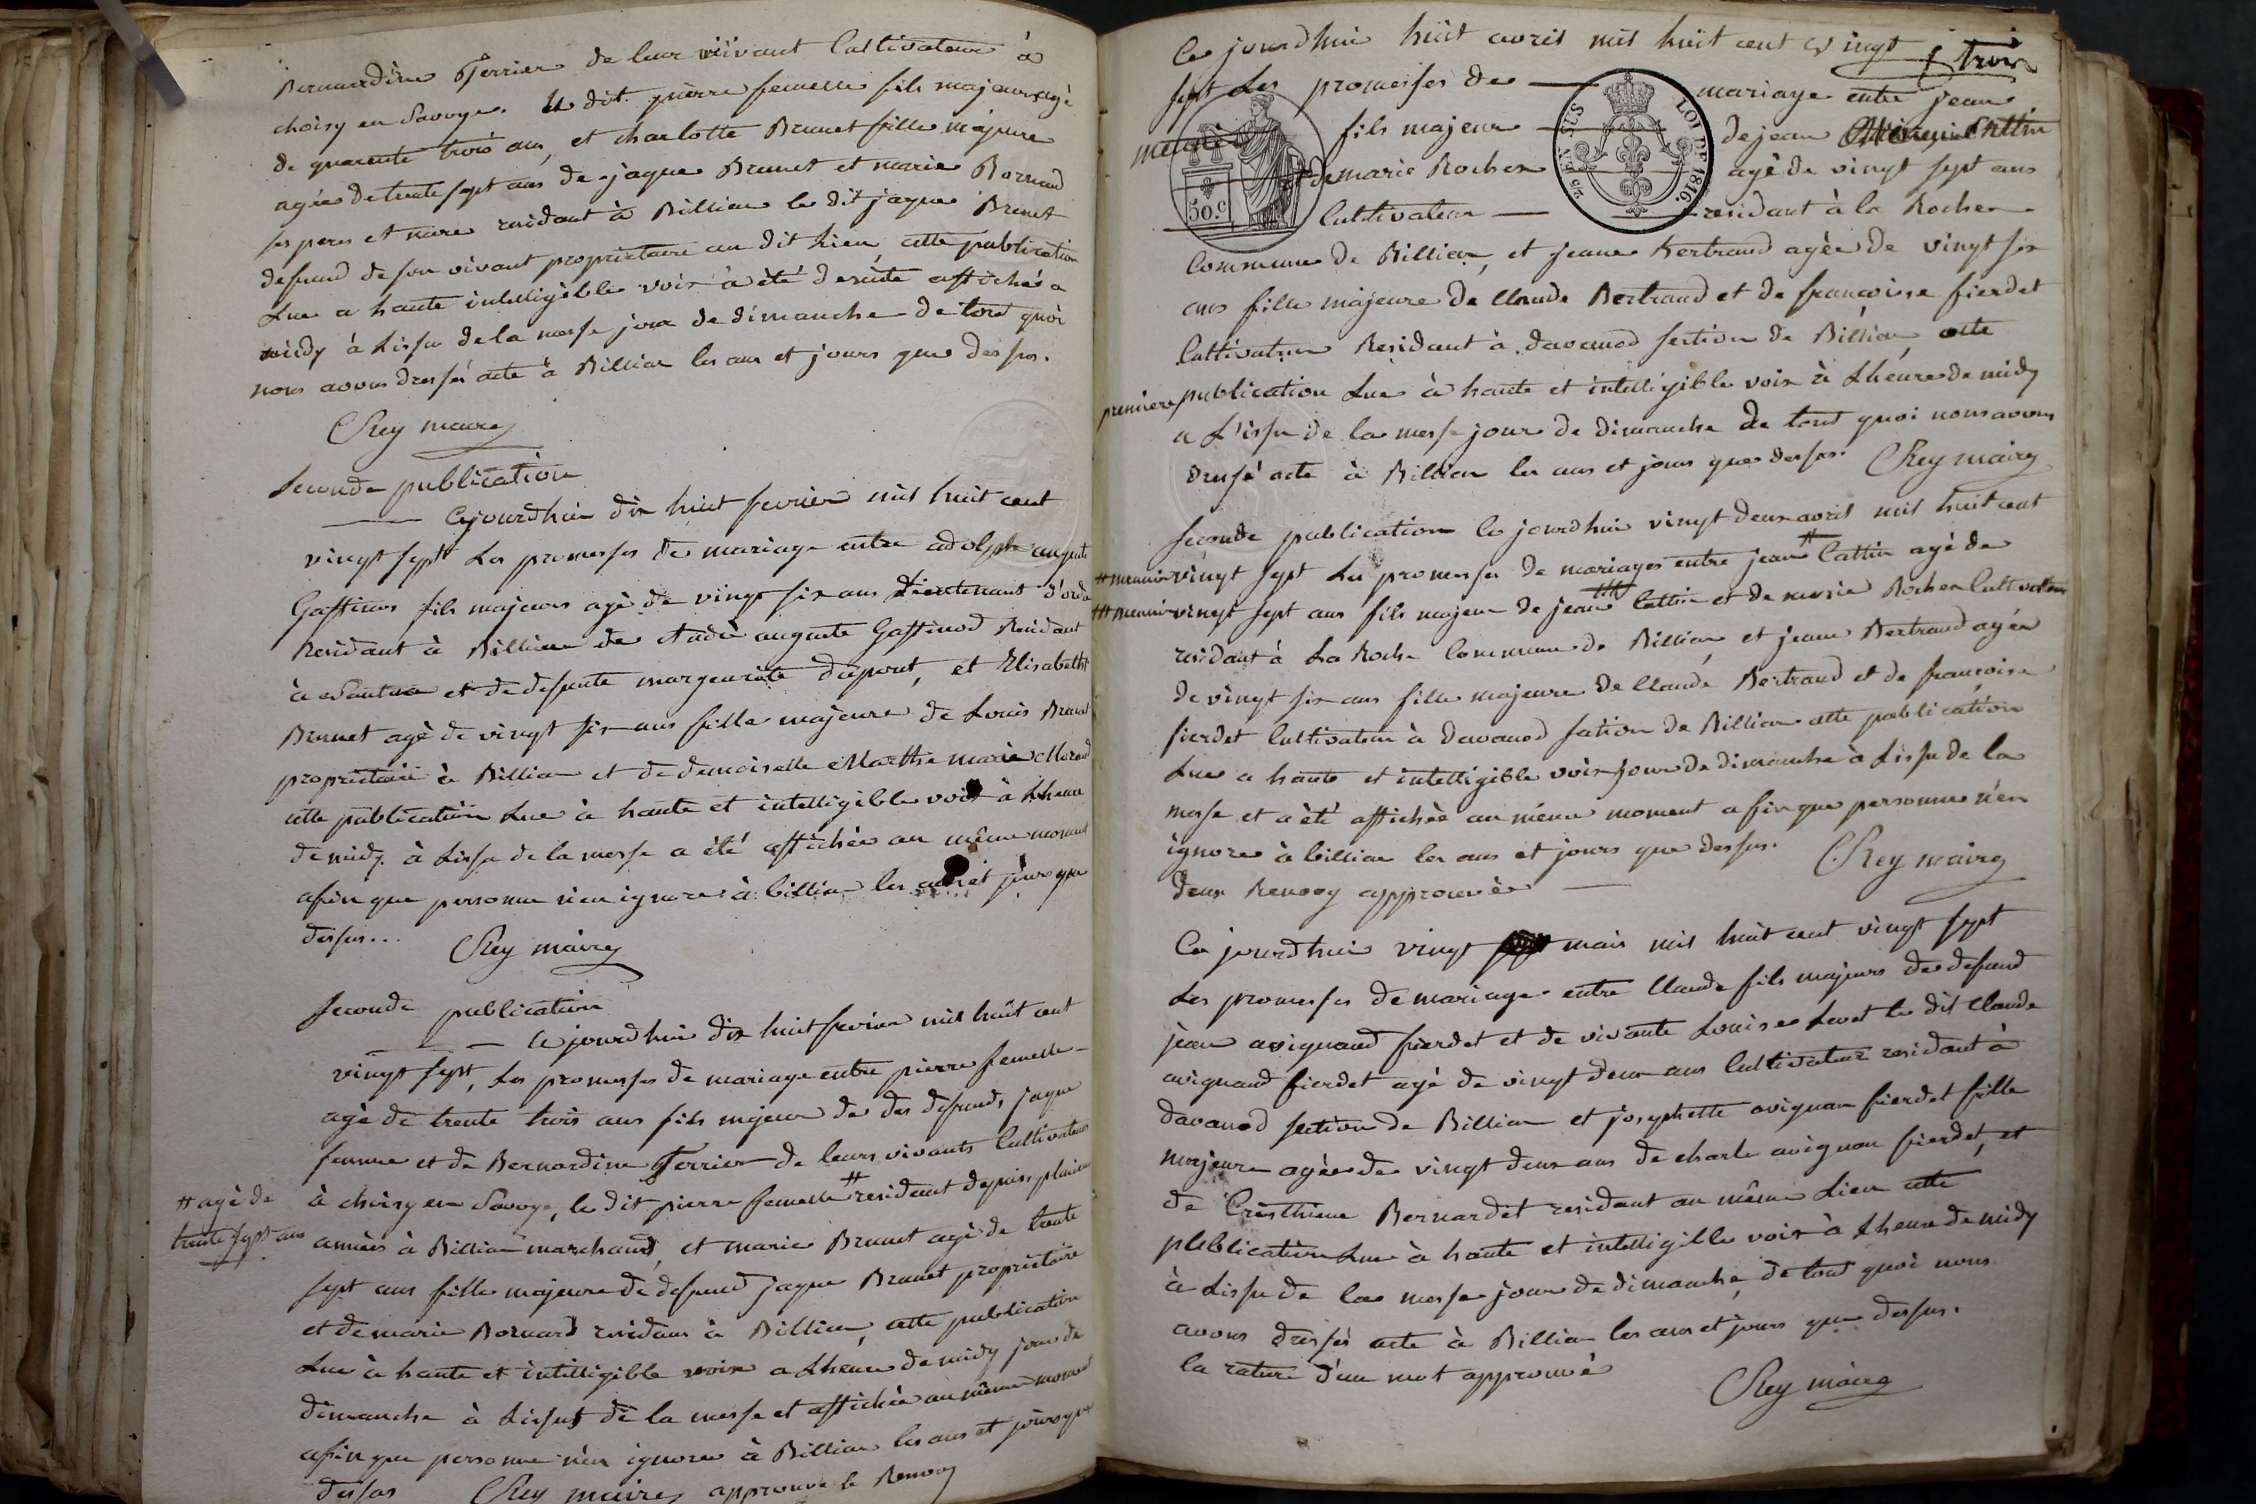 Bernardine Terrier de leur vivant Cultivateur à
choisy en Savoye. Le dit pierre femelle fils majeur agé
de quarente trois ans, et charlotte Brunet fille majeure
agée de trente sept ans de jaque Brunet et marie Bornard
ses peres et mere residant à Billiat le dit jaque Brunet
defund de son vivant proprietaire au dit Lieu, cette publication
Lue a haute intelligible voix à été desuite affiché a
midy à Lissu de la messe jour de dimanche de tout quoi
nous avons dressé acte à Billiat les an et jours que dessus.
Rey maire
Seconde publication
Cejourdhui dix huit fevrier mil huit cent
vingt sept Les promesses de mariage entre adolphe auguste
Gaffinod fils majeurs agé de vingt six ans Lieutenant d'ord
Residant à Billiat de auguste Gaffinod Residant
à et de defunte margeurite dupont, et Elisabeth
Brunet agé de vingt six ans fille majeure de Louis Brunet
proprietaire à Billiat et de demoiselle Marthe marie Morand
cette publication Lue à haute et intelligible voix à Lheure
de midy à Lissu de la messe a été affichée au même moment
afin que personne n'en ignore à billiat les ans et jours que
dessus... Rey maire
Seconde publication
Ce jourdhui dix huit fevrier mil huit cent
vingt sept, Les promesses de mariage entre pierre femelle
agé de trente trois ans fils majeur de des defunds jaque
femme et de Bernardine Terrier de leurs vivants Cultivateurs
# agé de
trente sept ans
à choisy en Savoye, le dit pierre femelle # residant depuis plusieurs
années à Billiat marchand, et marie Brunet agé de trente
sept ans fille majeure de defund jaque Brunet proprietaire
et de marie Bornard residans à Billiat, cette publication
Lue à haute et intelligible voix a Lheure de midy jour de
dimanche à Lissus de la messe et affichée au même moment
afin que personne n'en ignore à Billiat les ans et jours que
dessus Rey maire approuvé le Renvoy
trois
Ce jourdhui huit avril mil huit cent vingt
sept Les promesses de mariage entre jean
fils majeur de jean Cattin
de marie Rochex agé de vingt sept ans
50.c
25c EN SUS LOI DE 1816.
Cultivateur residant à la Roche
Commune de Billiat, et jeanne Bertrand agée de vingt six
ans fille majeure de Claude Bertrand et de francoise fierdet
Cultivateur Residant à davanod section de Billiat, cette
premiere publication Lue à haute et intelligible voix à Lheure de midy
a L'issu de la messe jour de dimanche de tout quoi nous avons
dressé acte à Billiat les ans et jours que dessus. Rey maire
Seconde publication Ce jourdhui vingt deux avril mil huit cent
vingt sept Les promesses de mariages entre jean # Cattin agé de
vingt sept ans fils majeur de jean Cattin et de marie Rochex Cultivateur
residant à La Roche Commune de Billiat, et jeanne Bertrand agée
de vingt six ans fille majeure de Claude Bertrand et de françoise
fierdet Cultivateur à davanod section de Billiat cette publication
Lue a haute et intelligible voix jour de dimanche à Lissu de la
messe et a été affichée au même moment afin que personne n'en
ignore à billiat les ans et jours que dessus. Rey maire
deux Renvoy approuvée
Ce jourdhui vingt mais mil huit cent vingt sept
Les promesses de mariage entre Claude fils majeurs de defund
jean avignand fierdet et de vivante Louise Levet le dit Claude
avignand fierdet agé de vingt deux ans Cultivateur residant à
davanod section de Billiat et josephette avignan fierdet fille
majeure agée de vingt deux ans de charle avignan fierdet, et
de Cresthine Bernardet residant au même Lieu cette
publication Lue à haute et intelligible voix à Lheure de midy
à Lissu de la messe jour de dimanche, de tout quoi nous
avons dressé acte à Billiat les ans et jours que dessus.
la rature d'un mot approuvé
Rey maire